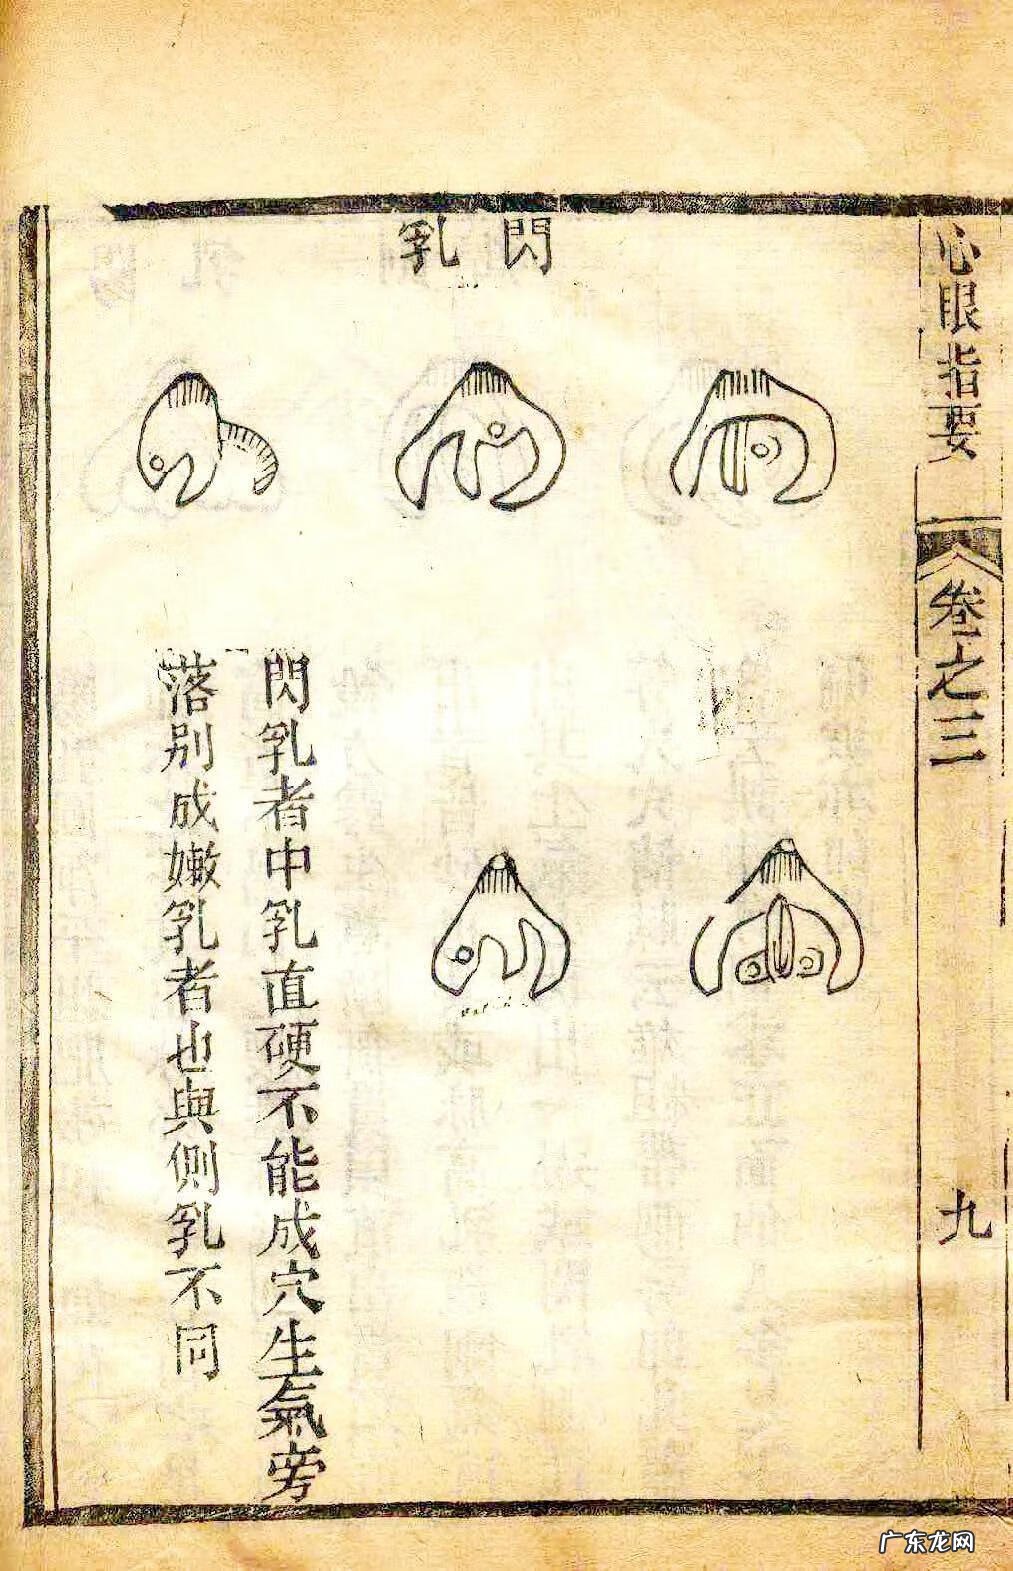 心眼指要
卷之三
九
閃乳
閃乳者中乳直硬不能成穴生氣旁
落別成嫩乳者也與側乳不同
广东龙网